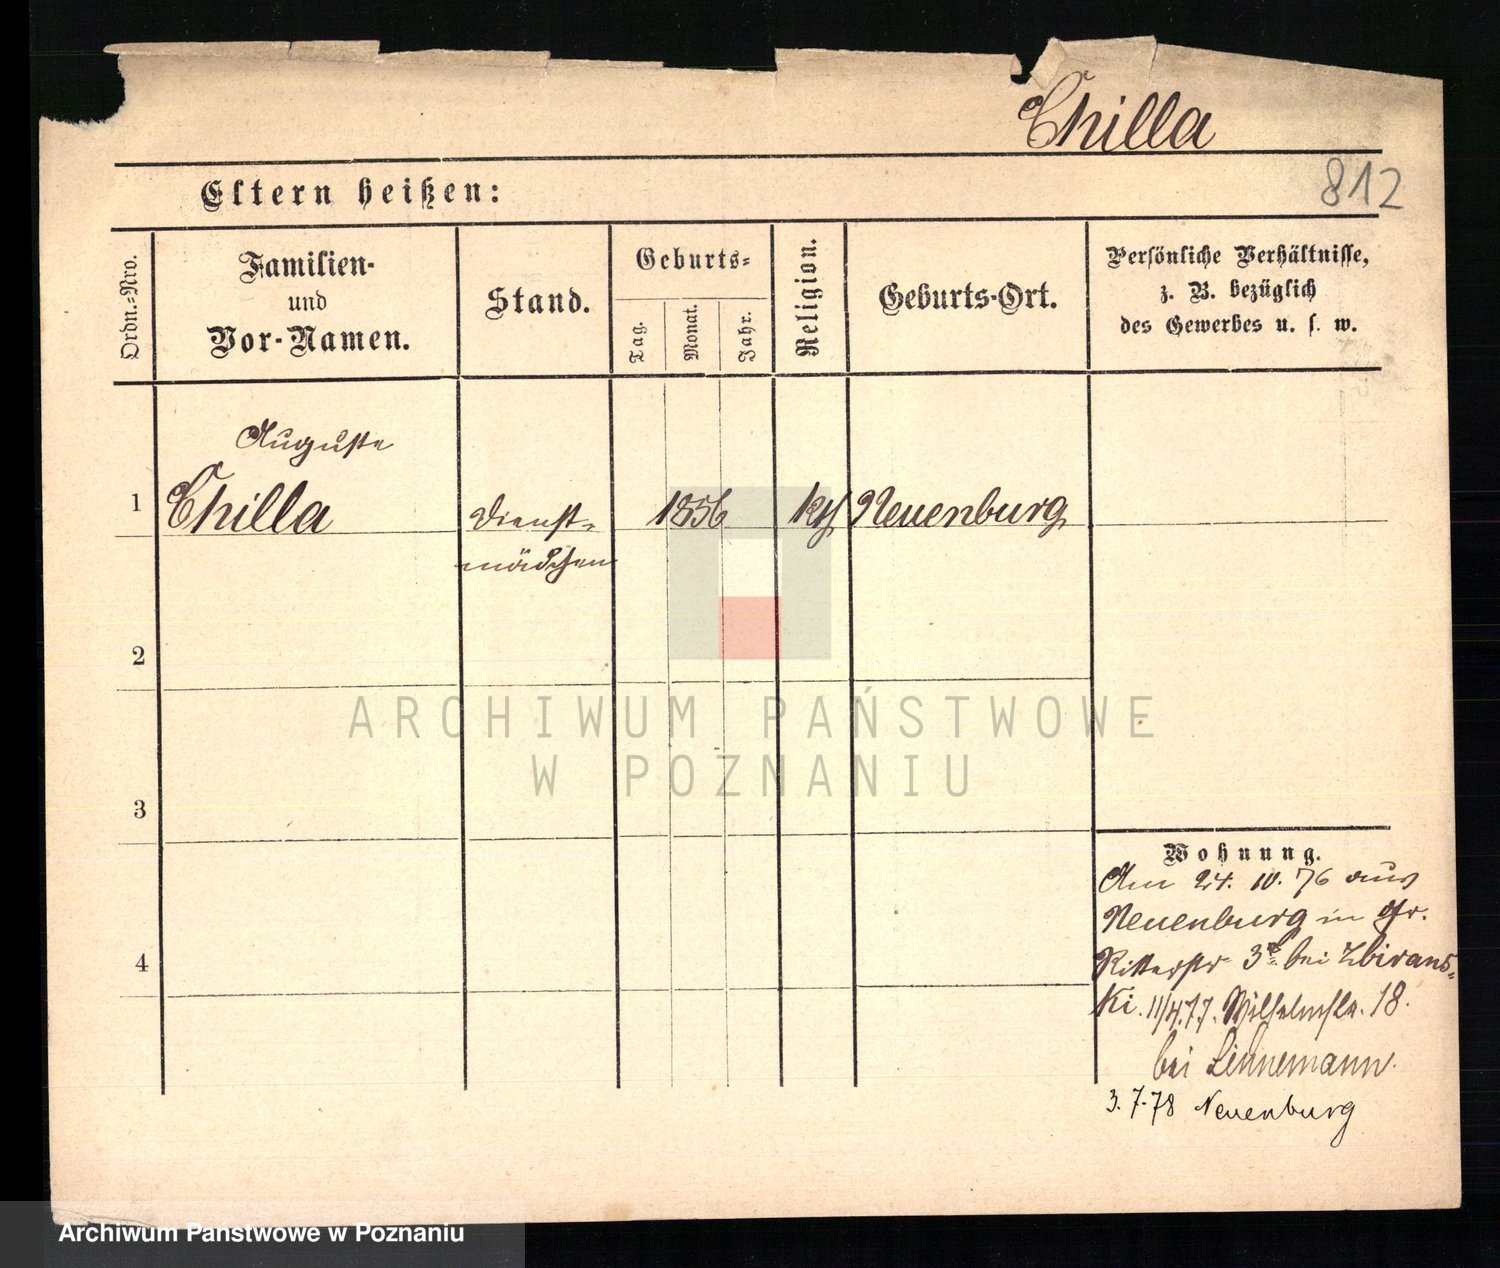 Chilla
812
Eltern heißen:
Ordn.-Nro.
Familien-
und
Vor-Namen.
Stand.
Geburts-
Tag.
Monat.
Jahr.
Religion.
Geburts-Ort.
Persönliche Verhältnisse,
z. B. bezüglich
des Gewerbes u. s. w.
Auguste
1 Chilla Dienst- 1856 kth Neuenburg
mädchen
2
3
4
ARCHIWUM PAŃSTWOWE
W POZNANIU
Wohnung.
Am 24. 10. 76 aus
Neuenburg in Gr.
Ritterstr 3 bei Zbirans-
ki. 11/4.77. Wilhelmstr. 18.
bei Linnemann.
3. 7. 78 Neuenburg
Archiwum Państwowe w Poznaniu